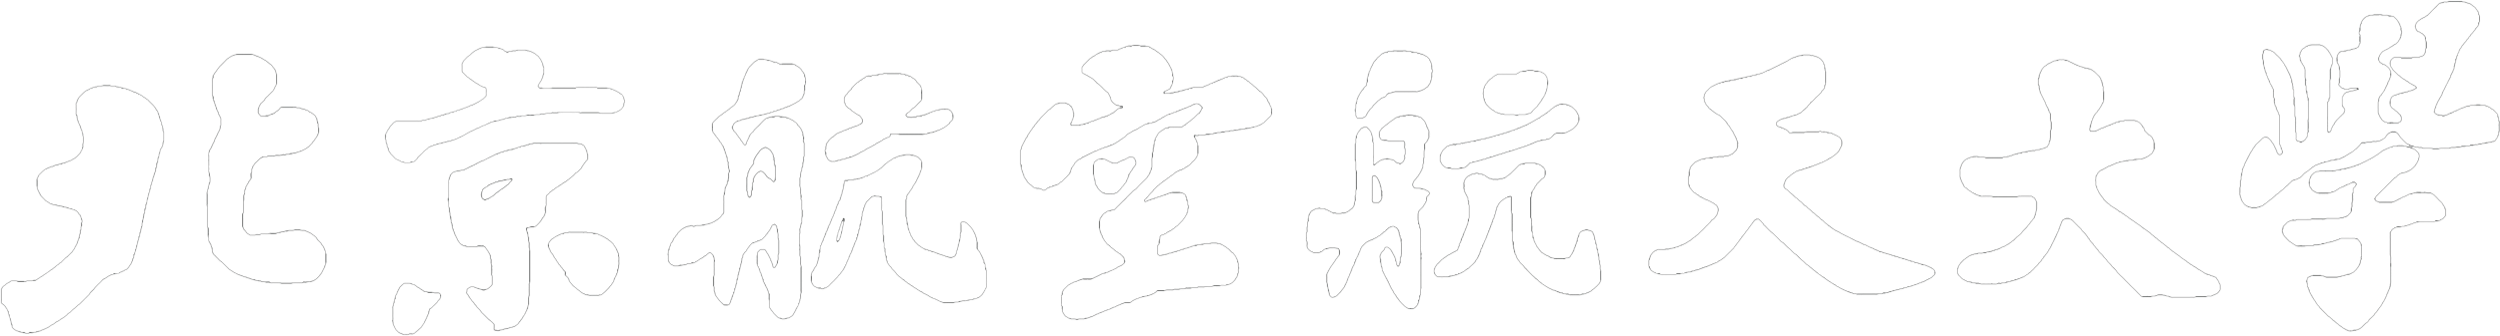 北京航空航天大學